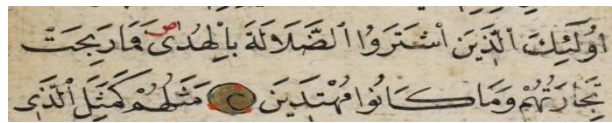 اُولَئِكَ الَّذِينَ اشْتَرَوُا الضَّلَالَةَ بِالْهُدَى فَمَا رَبِحَتْ
تِجَارَتُهُمْ وَمَا كَانُوا مُهْتَدِينَ مَثَلُهُمْ كَمَثَلِ الَّذِي